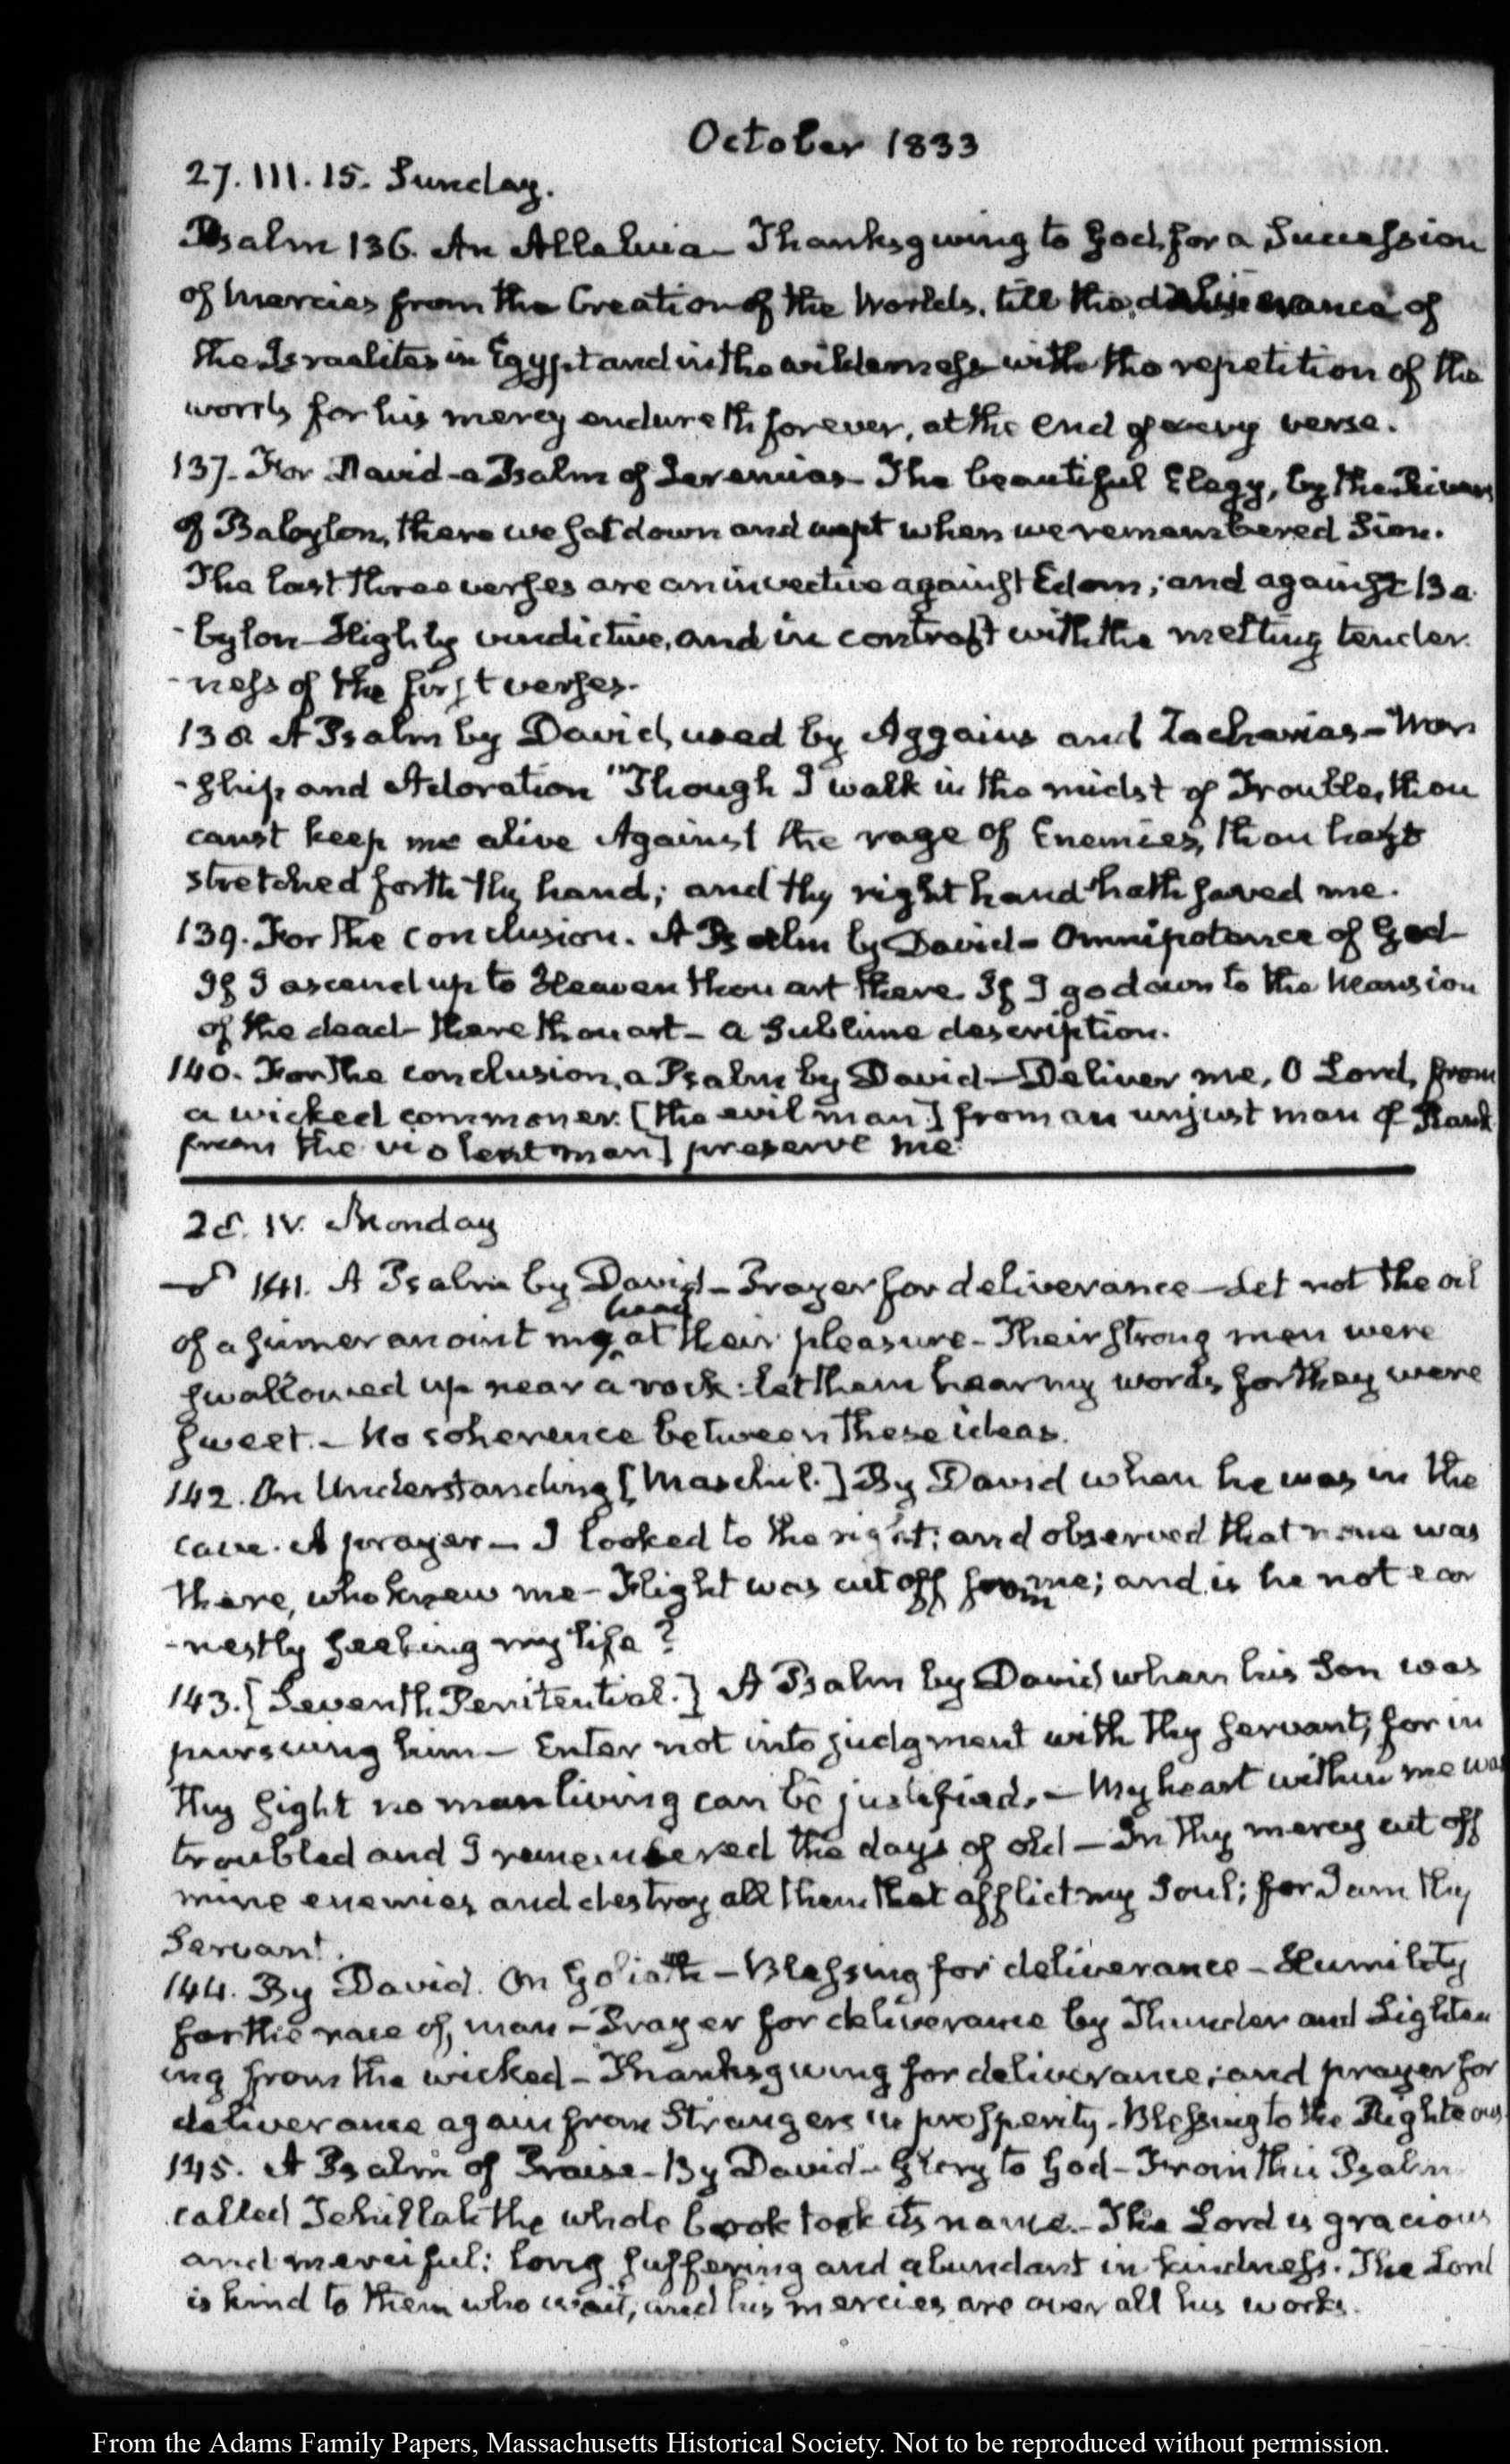 October 1833
27. III. 15. Sunday.
Psalm 136. An Alleluia – Thanksgiving to God, for a Succession
of Mercies from the Creation of the Worlds, till the deliverance of
the Israelites in Egypt and in the wilderness with the repetition of the
words for his mercy endureth forever, at the end of every verse.
137. For David – a Psalm of Jeremias – The beautiful Elegy, by the Rivers
of Babylon, there we sat down and wept when we remembered Sion.
The last three verses are an invective against Edom; and against Ba
-bylon – Highly vindictive, and in contrast with the melting tender
-ness of the first verses.
138 A Psalm by David, used by Aggaius and Zacharias – Wor
-ship and Adoration "Though I walk in the midst of Trouble, thou
canst keep me alive Against the rage of Enemies, thou hast
stretched forth thy hand; and thy right hand hath saved me.
139. For the conclusion. A Psalm by David – Omnipotence of God –
If I ascend up to Heaven thou art there. If I go down to the Mansion
of the dead – there thou art – a sublime description.
140. For the conclusion, a Psalm by David – Deliver me, O Lord, from
a wicked commoner. [the evil man] from an unjust man of Rank
from the violent man] preserve me.
28. IV. Monday
141. A Psalm by David – Prayer for deliverance – Let not the oil
head
of a sinner anoint my ^ at their pleasure – Their strong men were
swallowed up near a rock: let them hear my words, for they were
sweet. – No coherence between these ideas.
142. On Understanding [Maschil.] By David when he was in the
cave. A prayer – I looked to the right; and observed that none was
there, who knew me – Flight was cut off from me; and is he not ear
-nestly seeking my life?
143. [Seventh Penitential.] A Psalm by David when his Son was
pursuing him – Enter not into judgment with thy servant; for in
thy sight no man living can be justified. – My heart within me was
troubled and I remembered the days of old – In thy mercy cut off
mine enemies and destroy all them that afflict my Soul; for I am thy
Servant.
144. By David. On Goliath – Blessing for deliverance – Humility
for the race of, man – Prayer for deliverance by Thunder and Lighten
ing from the wicked – Thanksgiving for deliverance; and prayer for
deliverance again from Strangers in prosperity. Blessing to the Righteous
145. A Psalm of Praise – By David – Glory to God – From this Psalm
called Tehillah the whole book took its name. – The Lord is gracious
and merciful: long suffering and abundant in kindness. The Lord
is kind to them who wait, and his mercies are over all his works.
From the Adams Family Papers, Massachusetts Historical Society. Not to be reproduced without permission.